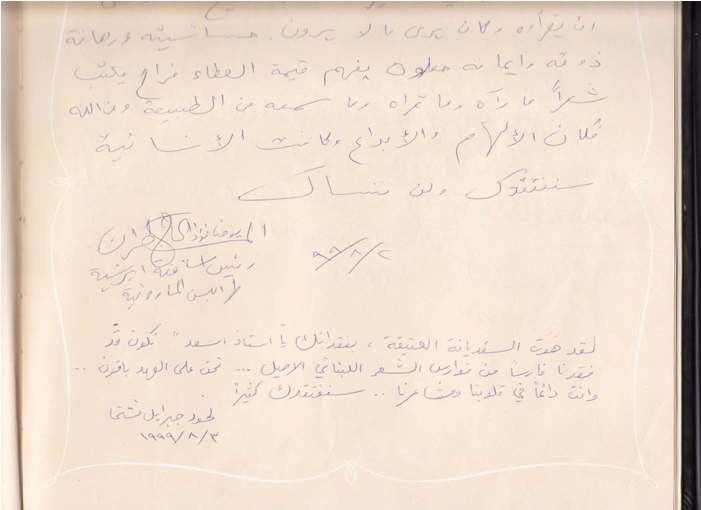 ان يقرأوه وكان يرى ما لا يرون. حساسيته ورهافة
ذوقه وايمانه جعلوه يفهم قيمة العطاء فراح يكتب
شعراً ما رآه وما قرأه وما سمعه من الطبيعة ومن الله
فكان الألهام والأبداع وكانت الأنسانية
سنفتقدك ولن ننساك
٩٩/٨/٢
رئيس اساقفة ابرشية
طرابلس المارونية
لقد هَوَت السنديانة العتيقة ، بفقدانك يا استاذ اسعد" نكون قد
فقدنا فارساً من فوارس الشعر اللبناني الاصيل ... نحن على العهد باقون ..
وانت دائماً في قلوبنا ومشاعرنا .. سنفتقدك كثيراً
لحود جبرايل
١٩٩٩/٨/٣